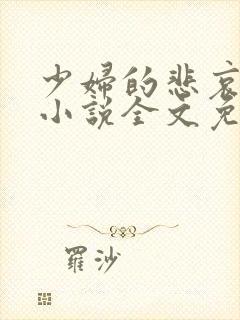 少婦的悲哀
小說全文免
羅沙